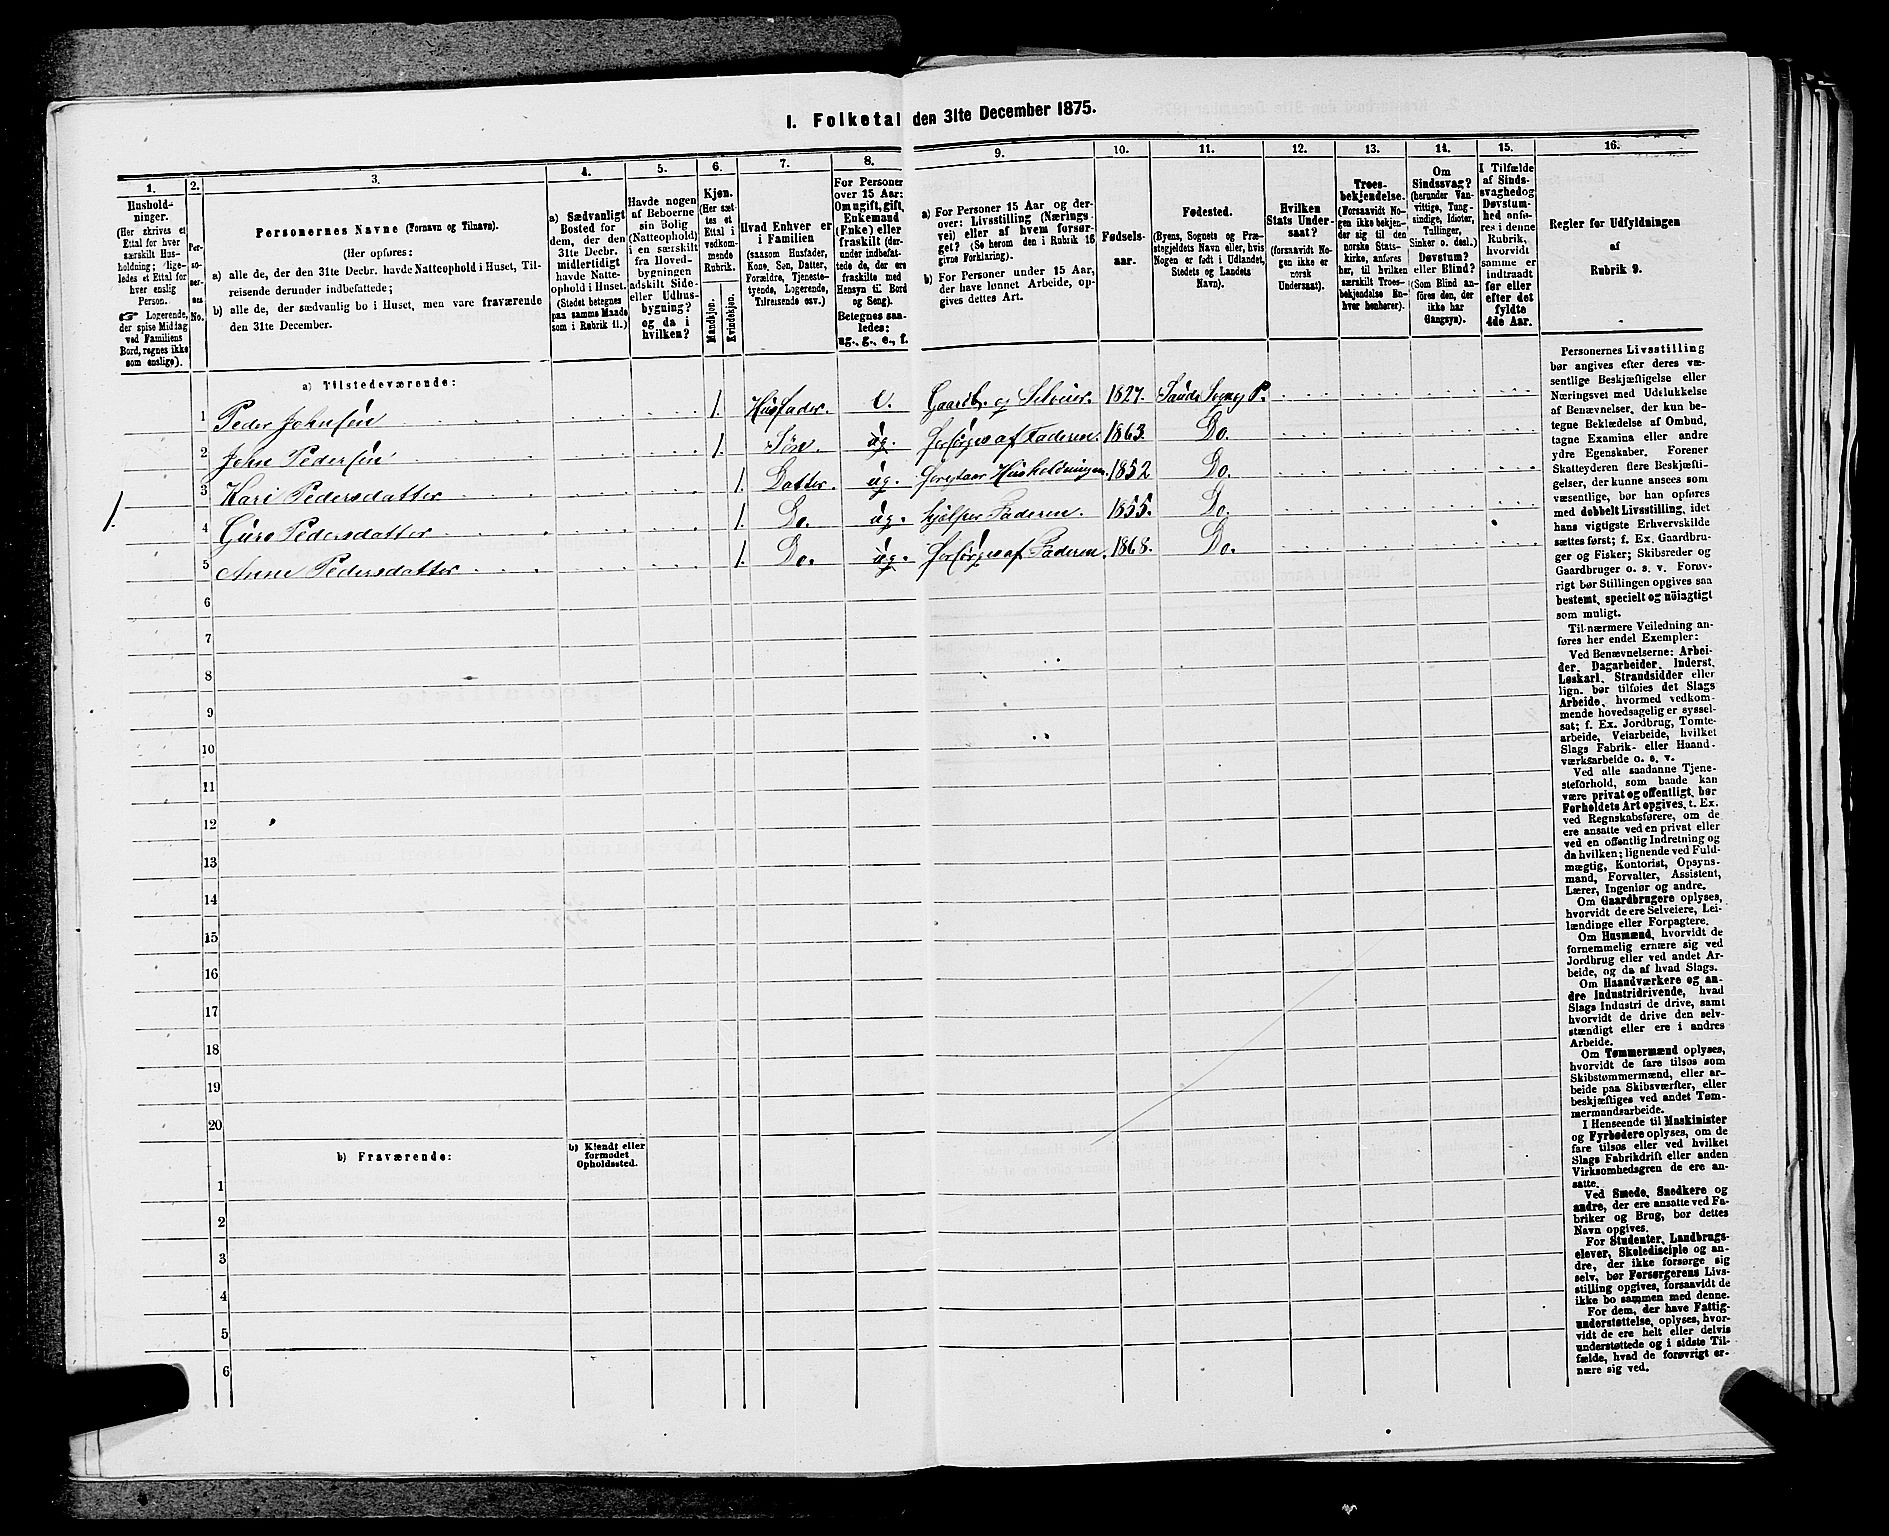 I. Folketal den 31te December 1875.
1. 2. 3. 4. 5. 6. 7. 8. 9. 10. 11. 12. 13. 14. 15. 16.
Husholdninger.
(Her skrives et
Ettal for hver
særskilt Husholdning; ligeledes
et Ettal for
hver enslig
Person.
☞ Logerende,
der spise Middag
ved Familiens
Bord, regnes ikke
som enslige).
Personernes No.
Personernes Navne (Fornavn og Tilnavn).
(Her opføres:
a) alle de, der den 31te Decbr. havde Natteophold i Huset, Tilreisende derunder indbefattede;
b) alle de, der sædvanlig bo i Huset, men vare fraværende
den 31te December.
a) Sædvanligt
Bosted for
dem, der den
31te Decbr.
midlertidigt
havde Natteophold i Huset.
(Stedet betegnes
paa samme Maade
som i Rubrik 11.)
Havde nogen
af Beboerne
sin Bolig
(Natteophold)
i en særskilt
fra Hovedbygningen
adskilt Side-
eller Udhusbygning?
og da i
hvilken?
Kjøn.
(Her sættes et
Ettal i
vedkommende
Rubrik.
Mandkjøn.
Kvindekjøn.
Hvad Enhver er
i Familien
(saasom Husfader,
Kone, Søn, Datter,
Forældre, Tjenestetyende, Logerende,
Tilreisende osv.)
For Personer
over 15 Aar:
Om ugift, gift,
Enkemand
(Enke) eller
fraskilt (derunder indbefattede de, der ere
fraskilte med
Hensyn til Bord
og Seng).
Betegnes saaledes:
ug., g., e., f.
a) For Personer 15 Aar og derover: Livsstilling (Næringsvei) eller af hvem forsørget? (Se herom den i Rubrik 16
givne Forklaring).
b) For Personer under 15 Aar,
der have lønnet Arbeide, opgives dettes Art.
Fødselsaar.
Fødested.
(Byens, Sognets og Præstegjeldets Navn eller, hvis
Nogen er født i Udlandet,
Stedets og Landets
Navn).
Hvilken
Stats Undersaat?
(forsaavidt Nogen ikke er
norsk
Undersaat).
Troesbekjendelse.
(Forsaavidt Nogen ikke bekjender sig til den
norske Statskirke, anføres
her, til hvilken
særskilt Troesbekjendelse Enhver henhører).
Om
Sindssvag?
(herunder Vanvittige, Tungsindige, Idioter,
Tullinger,
Sinker o. desl.)
Døvstum?
eller Blind?
(Som Blind anføres den, der
ikke har
Gangsyn).
I Tilfælde
af Sindssvaghed og
Døvstumhed anføres i denne
Rubrik,
hvorvidt
samme er
indtraadt
før eller
efter det
fyldte
4de Aar.
Regler for Udfyldningen
af
Rubrik 9.
a) Tilstedeværende:
1 Peder Johnsen 1. Husfader. e. Gaardb. og Selveier. 1827. Saude Sogn, P.
2 John Pedersen 1. Søn ug. forsørges af Faderen. 1863. Do.
1. 3 Kari Pedersdatter 1. Datter. ug. forestaar Husholdningen. 1852 Do.
4 Guro Pedersdatter 1. Do. ug. hjelper Faderen. 1855. Do.
5 Anne Pedersdatter 1. Do. ug. forsørges af Faderen. 1868. Do.
6
7
8
9
10
11
12
13
14
15
16
17
18
19
20
b) Fraværende:
b) Kjendt eller
formodet
Opholdssted.
1
2
3
4
5
6
Personernes Livsstilling
bør angives efter deres væsentlige Beskjæftigelse eller
Næringsvei med Udelukkelse
af Benævnelser, der kun betegne Beklædelse af Ombud,
tagne Examina eller andre
ydre Egenskaber. Forener
Skatteyderen flere Beskjæftigelser, der kunne ansees som
væsentlige, bør han opføres
med dobbelt Livsstilling, idet
hans vigtigste Erhvervskilde
sættes først; f. Ex. Gaardbruger og Fisker; Skibsreder og
Gaardbruger o. s. v. Forøvrigt bør Stillingen opgives saa
bestemt, specielt og nöiagtigt
som muligt.
Til nærmere Veiledning anføres her endel Exempler:
Ved Benævnelserne: Arbeider, Dagarbeider, Inderst,
Løskarl, Strandsidder eller
lign. bør tilføies det Slags
Arbeide, hvormed vedkommende hovedsagelig er sysselsat; f. Ex. Jordbrug, Tomtearbeide, Veiarbeide, hvilket
Slags Fabrik- eller Haandværksarbeide o. s. v.
Ved alle saadanne Tjenesteforhold, som baade kan
være privat og offentligt, bør
Forholdets Art opgives, t. Ex.
ved Regnskabsførere, om de
ere ansatte ved en privat eller
ved en offentlig Indretning og
da hvilken; lignende ved Fuldmægtig, Kontorist, Opsynsmand, Forvalter, Assistent,
Lærer, Ingeniør og andre.
Om Gaardbrugere oplyses,
hvorvidt de ere Selveiere, Leilændinge eller Forpagtere.
Om Husmænd, hvorvidt de
fornemmelig ernære sig ved
Jordbrug eller ved andet Arbeide, og da af hvad Slags.
Om Haandværkere og andre Industridrivende, hvad
Slags Industri de drive, samt
hvorvidt de drive den selvstændigt eller ere i andres
Arbeide.
Om Tømmermænd oplyses,
hvorvidt de fare tilsøs som
Skibstømmermænd, eller arbeide paa Skibsværfter, eller
beskjæftiges ved andet Tømmermandsarbeide.
I Henseende til Maskinister
og Fyrbødere oplyses, om de
fare tilsøs eller ved hvilket
Slags Fabrikdrift eller anden
Virksomhedsgren de ere ansatte.
Ved Smede, Snedkere og
andre, der ere ansatte ved Fabriker og Brug, bør dettes
Navn opgives.
For Studenter, Landbrugselever, Skoledisciple og andre, der ikke forsørge sig
selv, bør Forsørgerens Livsstilling opgives, forsaavidt de
ikke bo sammen med denne.
For dem, der have Fattigunderstøttelse, oplyses, hvorvidt de ere helt eller delvis
understøttede og i sidste Tilfælde, hvad de forøvrigt ernære sig ved.